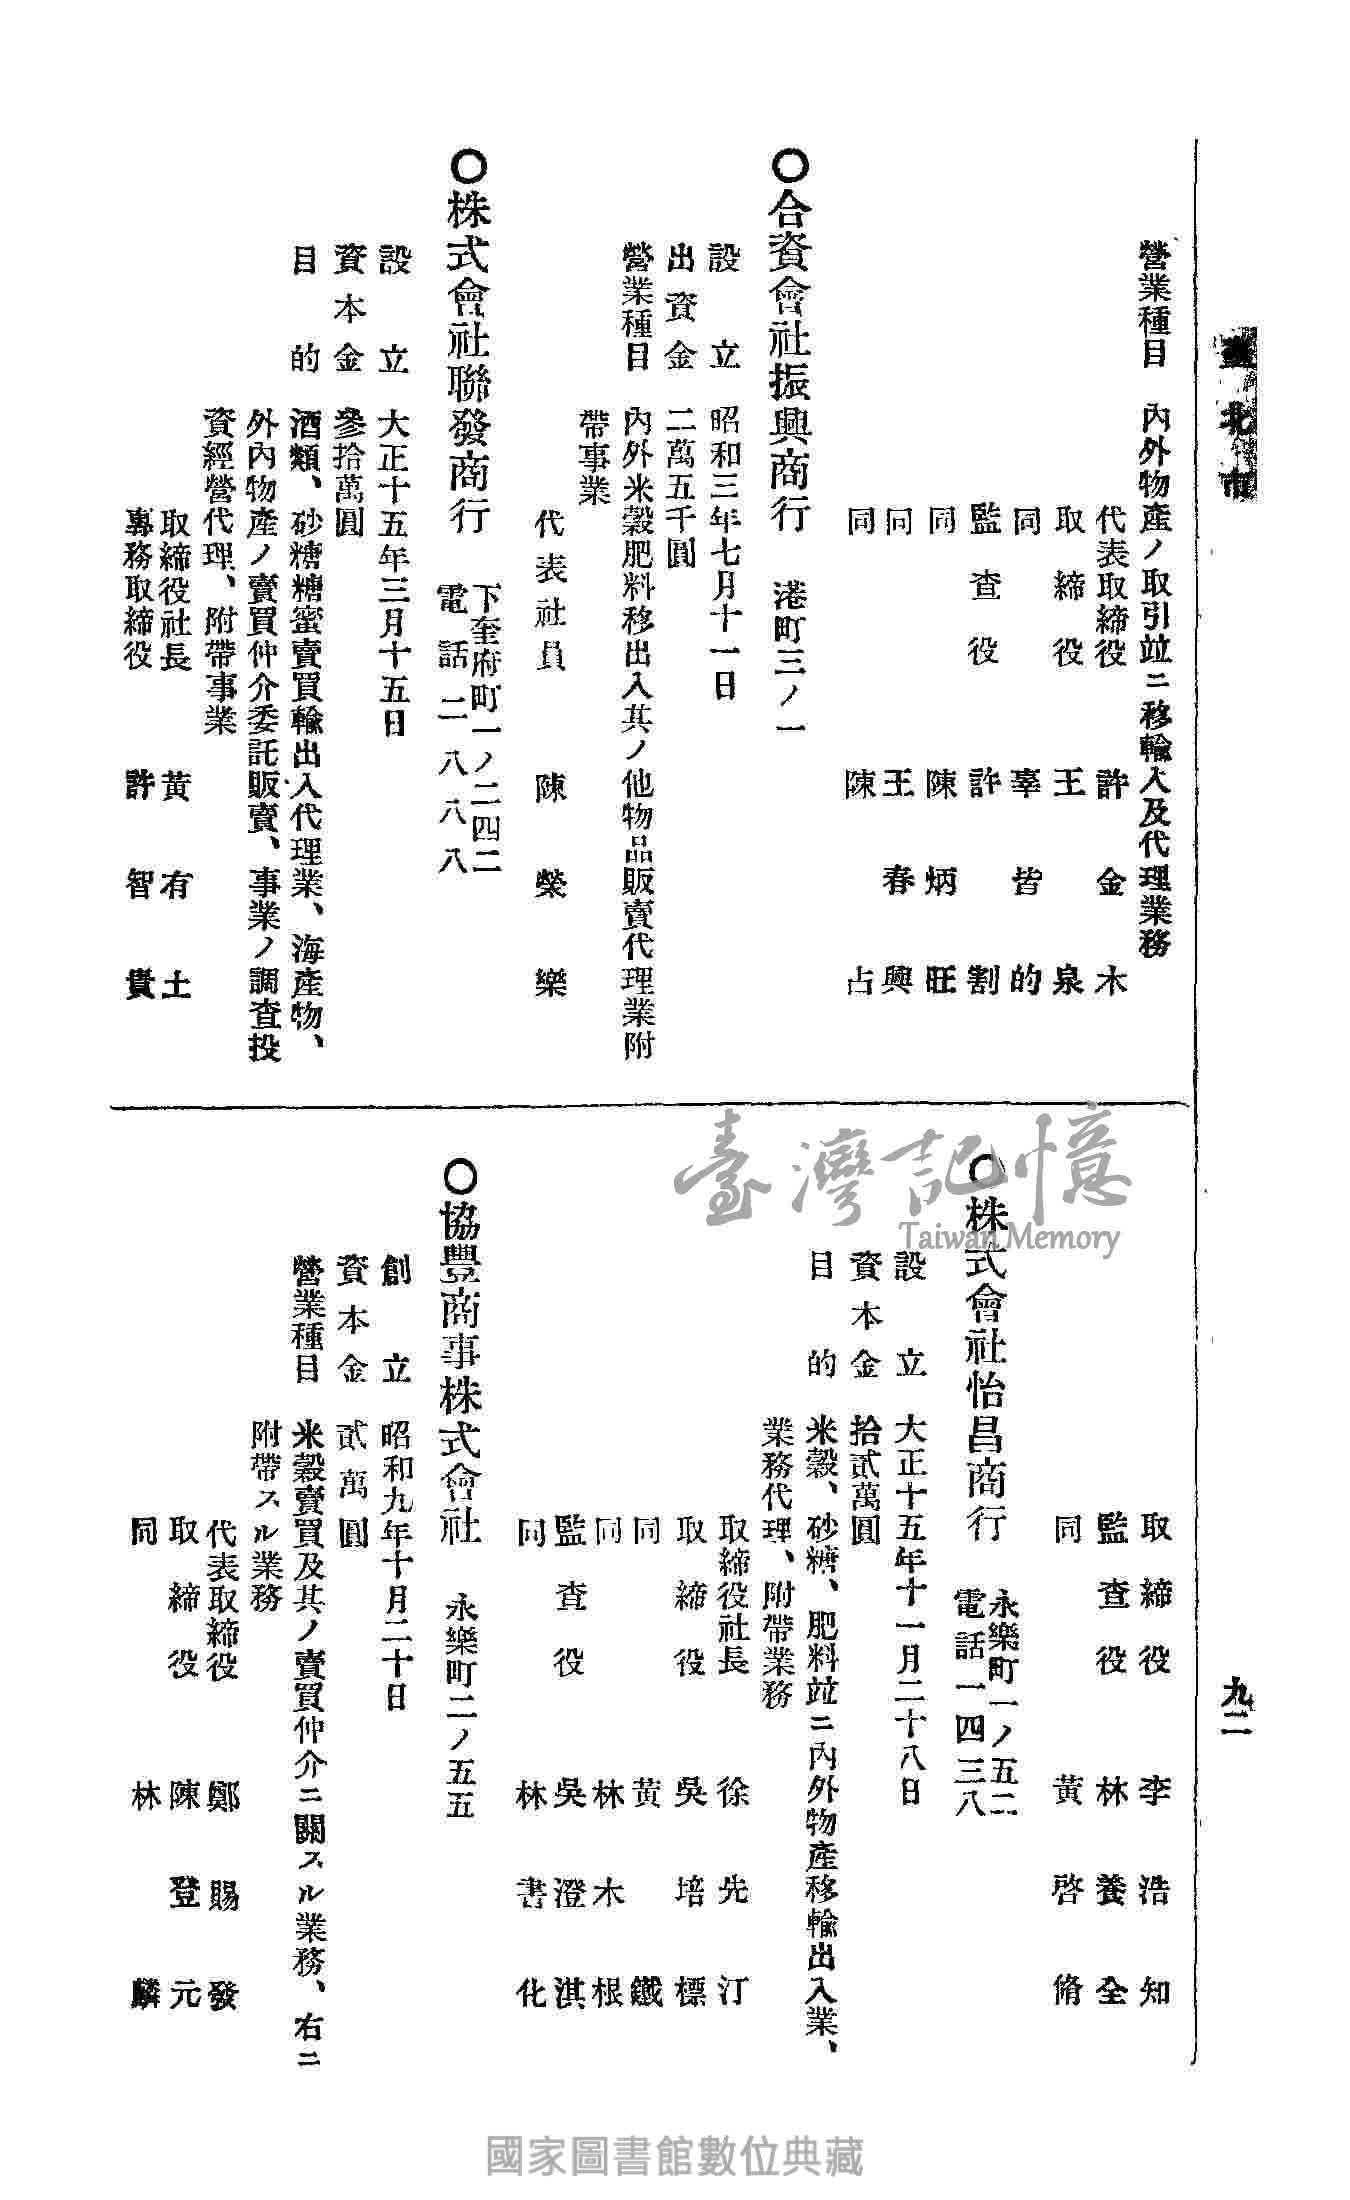 臺北市
九二
營業種目 內外物產ノ取引竝ニ移輸入及代理業務
代表取締役 許金木
取締役 王泉
同 辜皆的
監查役 許割
同 陳炳旺
同 王春興
同 陳占
〇合資會社振興商行 港町三ノ一
設立 昭和三年七月十一日
出資金 二萬五千圓
營業種目 內外米穀肥料移出入其ノ他物品販賣代理業附
帶事業
代表社員 陳榮樂
〇株式會社聯發商行 下奎府町一ノ二四二
電話二八八八
設立 大正十五年三月十五日
資本金 參拾萬圓
目的 酒類、砂糖糖蜜賣買輸出入代理業、海產物、
外內物產ノ賣買仲介委託販賣、事業ノ調查投
資經營代理、附帶事業
取締役社長 黃有土
專務取締役 許智貴
取締役 李浩知
監查役 林養全
同 黃啓脩
〇株式會社怡昌商行 永樂町一ノ五二
電話一四三八
設立 大正十五年十一月二十八日
資本金 拾貳萬圓
目的 米穀、砂糖、肥料竝ニ內外物產移輸出入業、
業務代理、附帶業務
取締役社長 徐先汀
取締役 吳培標
同 黃鐵
同 林木根
監查役 吳澄淇
同 林書化
〇協豐商事株式會社 永樂町二ノ五五
創立 昭和九年十月二十日
資本金 貳萬圓
營業種目 米穀賣買及其ノ賣買仲介ニ關スル業務、右ニ
附帶スル業務
代表取締役 鄭賜發
取締役 陳登元
同 林麟
臺灣記憶
Taiwan Memory
國家圖書館數位典藏